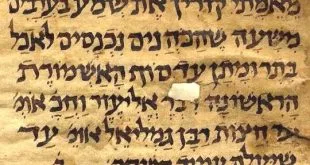 מאמתי קורין את שמע בערבים
משעה שהכהנים נכנסים לאכל
בתרומתן עד סוף האשמורת
הראשונה דבר אליעזר וחכ אומ'
עד חצות רבן גמליאל אומ' עד